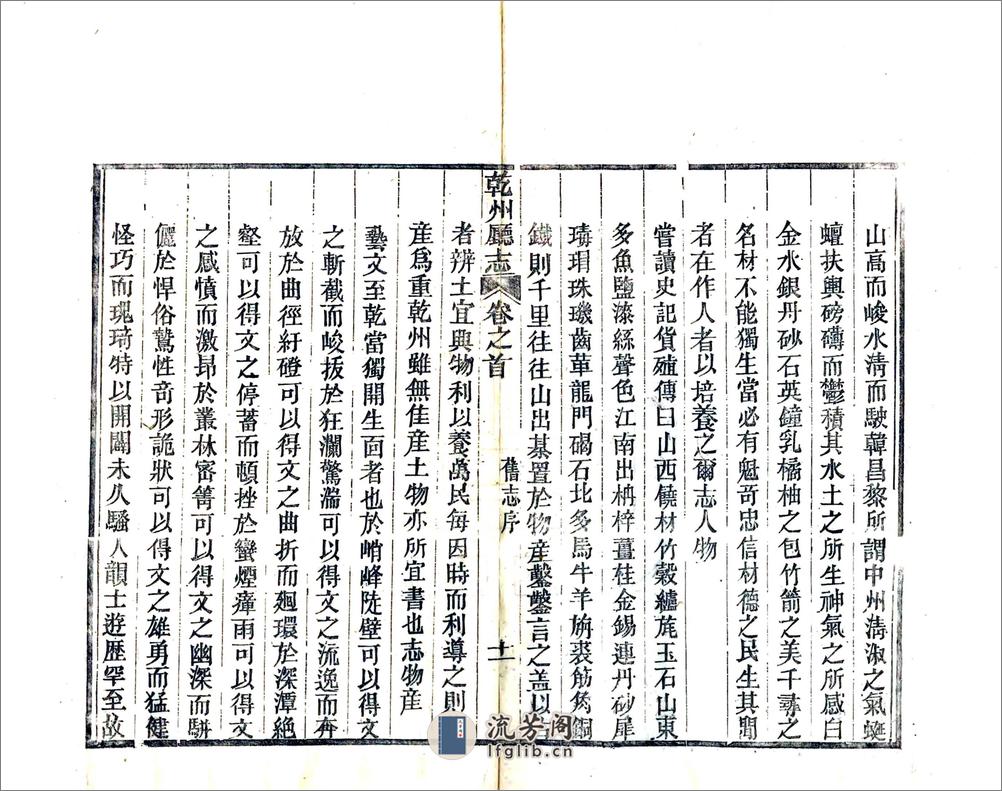 山高而峻水淸而駛韓昌黎所謂中州淸淑之氣蜒
蟺扶輿磅礴而鬱積其水土之所生神氣之所感白
金水銀丹砂石英鐘乳橘柚之包竹箭之美千尋之
名材不能獨生當必有魁奇忠信材德之民生其閒
者在作人者以培養之爾志人物
嘗讀史記貨殖傳曰山西饒材竹穀纑旄玉石山東
多魚鹽漆絲聲色江南出枏梓薑桂金錫連丹砂犀
瑇瑁珠璣齒革龍門碣石北多馬牛羊旃裘筋角銅
鐵則千里往往山出棊置於物産鑿鑿言之盖以
乾州廳志 卷之首 舊志序 十一
者辨土宜興物利以養萬民每因時而利導之則
産爲重乾州雖無佳産土物亦所宜書也志物産
藝文至乾當獨開生面者也於峭峰陡壁可以得文
之斬截而峻拔於狂瀾驚湍可以得文之流逸而奔
放於曲徑紆磴可以得文之曲折而廻環於深潭絶
壑可以得文之停蓄而頓挫於蠻煙瘴雨可以得文
之感憤而激昂於叢林審箐可以得文之幽深而駢
儷於悍俗鷙性奇形詭狀可以得文之雄勇而猛健
怪巧而瑰琦特以開闢未久騷人韻士遊歷罕至故
流芳阁
lfglib.cn